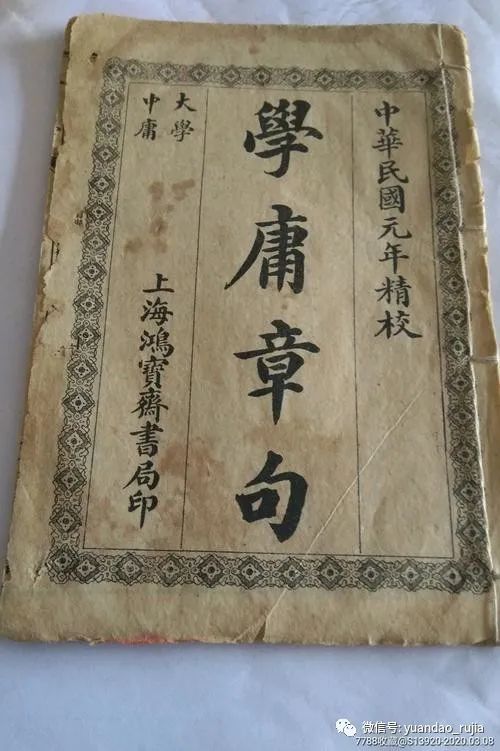 中華民國元年精校
學庸章句
大學
中庸
上海鴻寶齋書局印
微信号: yuandao_rujia
7788收藏@S13920-2020.03.08